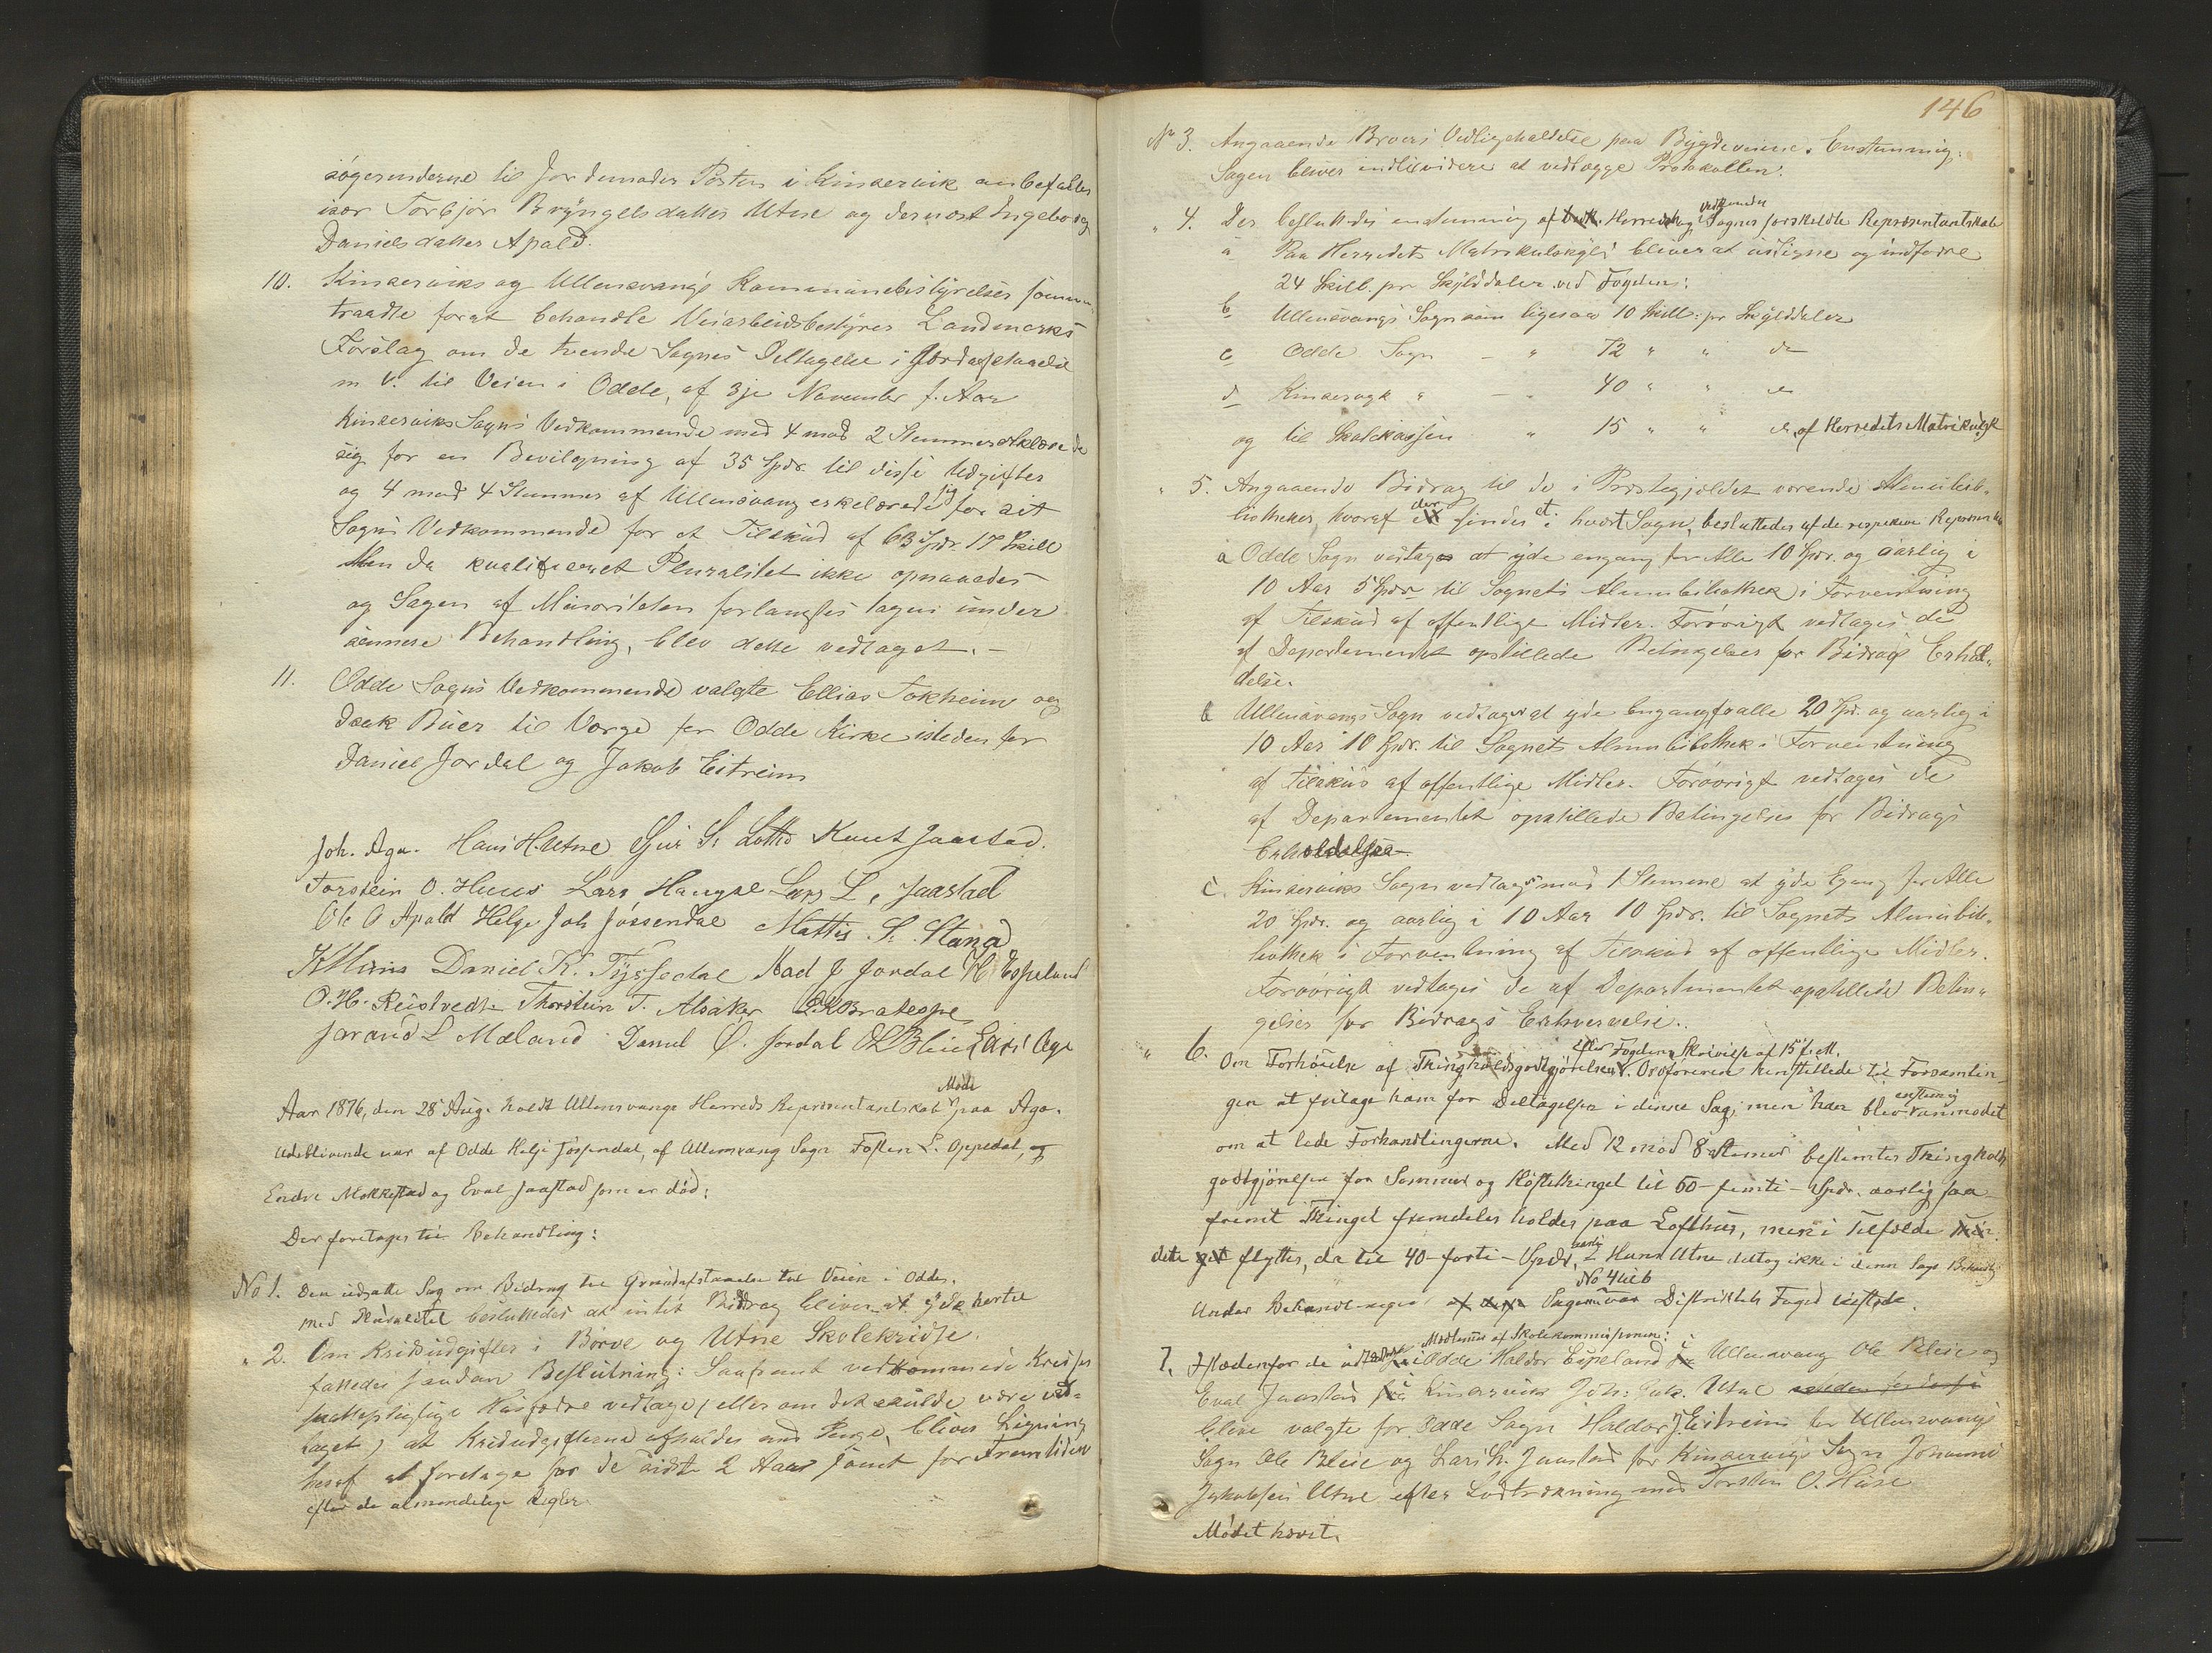 søgerinderne til Jordemoder Posten i Kinservik anbefales
især Torbjør Bryngelsdatter Utne og dernæst Ingeborg
Danielsdatter Apald.
10. Kinserviks og Ullensvangs Kommunebestyrelser sammen
traadte forat behandle Veiarbeidsbestyrer Landmarks
Forslag om de tvende Sognes Deltagelse i Jordafstaaelse
m. v. til Veien i Odde, af 3je November f. Aar
Kinserviks Sogns Vedkommende med 4 mod 2 Stemmer erklærede
sig for en Bevilgning af 35 Spdr. til disse Udgifter
og 4 mod 4 Stemmer af Ullensvang erkelærede sig for sit
Sogns Vedkommende for et Tilskud af 63 Spdr. 17 Skill
Men da kvalificeret Pluralitet ikke opnaaedes
og Sagen af Minoriteten forlangtes tagen under
sennere Behandling, blev dette vedtaget. –
11. Odde Sogns Vedkommende valgte Ellias Tokheim og
Isak Buer til Værge for Odde Kirke isteden for
Daniel Jordal og Jakob Eitreim
Joh. Aga. Hans H. Utne Sjur S. Lotthe Knut Jaastad.
Torstein O. Huus Lars Haugse Lars L. Jaastad
Ole O Apald Helge Joh Jøssendal Mattis S. Stana
Daniel K. Tyssedal Aad J Jordal H. Espeland
O. H. Reistvedt Thorstein T. Alsaker
Jarand L Mæland Daniel O. Jordal O L Bleie Lars Aga
Aar 1876, den 28 Aug. holdt Ullensvangs Herreds Repræsentantskab Møde paa Aga.
Udeblivende var af Odde Helge Jøssendal, af Ullensvang Sogn Tosten L. Oppedal og
Endre Mokkestad og Eval Jaastad som er død:
Der foretages til Behandling:
No 1. Den udsatte Sag om Bidrag til Grundafstaaelse til Veien i Odde.
med Pluralitet besluttedes at intet Bidrag bliver at yde hertil
" 2. Om Kridsudgifter i Børve og Utne Skolekridse.
fattedes saadan Beslutning: Saafremt vedkommende Kredses
skattepligtige Husfædre vedtager (eller om det skulde være ved-
taget) at Kredsudgifterne afholdes med Penge, bliver Ligning
heraf at foretage for de sidste 2 Aar samt for Fremtiden
efter de almindelige Regler.
146
No 3. Angaaende Broers Vedligeholdelse paa Bygdeveiene. Enstemmig.
Sagen bliver indtilvidere at vedlægge Protokollen.
" 4. Der besluttedes enstemmig af Herredets og vedkommende Sognes forskeldte Repræsentantskab
a Paa Herredets Matrikulskyld bliver at udligne og indfordre
24 Skill. pr Skylddaler ved Fogden:
b Ullensvangs Sogn som ligesaa 10 Skill: pr Skylddaler
c Odde Sogn – " 72 " " do
d Kinservik " – 40 " " do
og til Skolekassen " 15 " " do af Herredets Matrikulsk
" 5. Angaaende Bidrag til de i Præstegjældet værende Almuebib-
liotheker, hvoraf der findes et i hvert Sogn, besluttedes af de respektive Repræsent
a Odde Sogn vedtages at yde engang for Alle 10 Spdr. og aarlig i
10 Aar 5 Spdr til Sognets Almubibliothek i Forventning
af Tilskud af offentlige Midler. Forøvrigt vedtages de
af Departementet opstillede Betingelser for Bidrags Erhol-
delse.
b Ullensvangs Sogn vedtages at yde Engang for alle 20 Spd. og aarlig i
10 Aar 10 Spdr. til Sognets Almubibliothek i Forventning
af Tilskud af offentlige Midler. Forøvrigt vedtages de
af Departementet opstillede Betingelser for Bidrags
Erholdelse.
c. Kinserviks Sogn vedtages mod 1 Stemme at yde Egang for Alle
20 Spdr. og aarlig i 10 Aar 10 Spdr. til Sognets Almubib-
liothek i Forventning af Tilskud af offentlige Midler.
Forøvrigt vedtages de af Departmentet opstillede Betin-
gelser for Bidrags Erhvervelse.
" 6. Om Forhøielse af Thingholdsgodtgjørelsen efter Fogdens Skrivelse af 15 f. M. Ordføreren henstillede til Forsamlin-
gen at fritage ham for Deltagelse i denne Sag, men han blev enstemmig anmodet
om at lede Forhandlingerne. Med 12 mod 8 Stemmer bestemtes Thingholds
godtgjørelsen for Sommer og Høstthinget til 60 – femti – Spdr. aarlig saa-
fremt Thinget fremdeles holdes paa Lofthus, men i Tilfælde
dette flyttes, da til 40 – forti – Spdr. aarlig. Hans Utne deltog ikke i denne Sags Behandling
Under Behandlingen af Sagerne No 4 til 6 var Distriktets Foged tilstede.
7. Istedenfor de udtrædende Medlemmer af Skolekommissionen: i Odde Haldor Espeland i Ullensvang Ole Bleie og
Eval Jaastad i Kinservik Joh: Jak. Utne
bleve valgte for Odde Sogn Haldor J. Eitreim for Ullensvangs
Sogn Ole Bleie og Lars L. Jaastad for Kinserviks Sogn Johannes
Jakobsen Utne efter Lodtrækning med Torsten O. Huse
Mødet hævet.